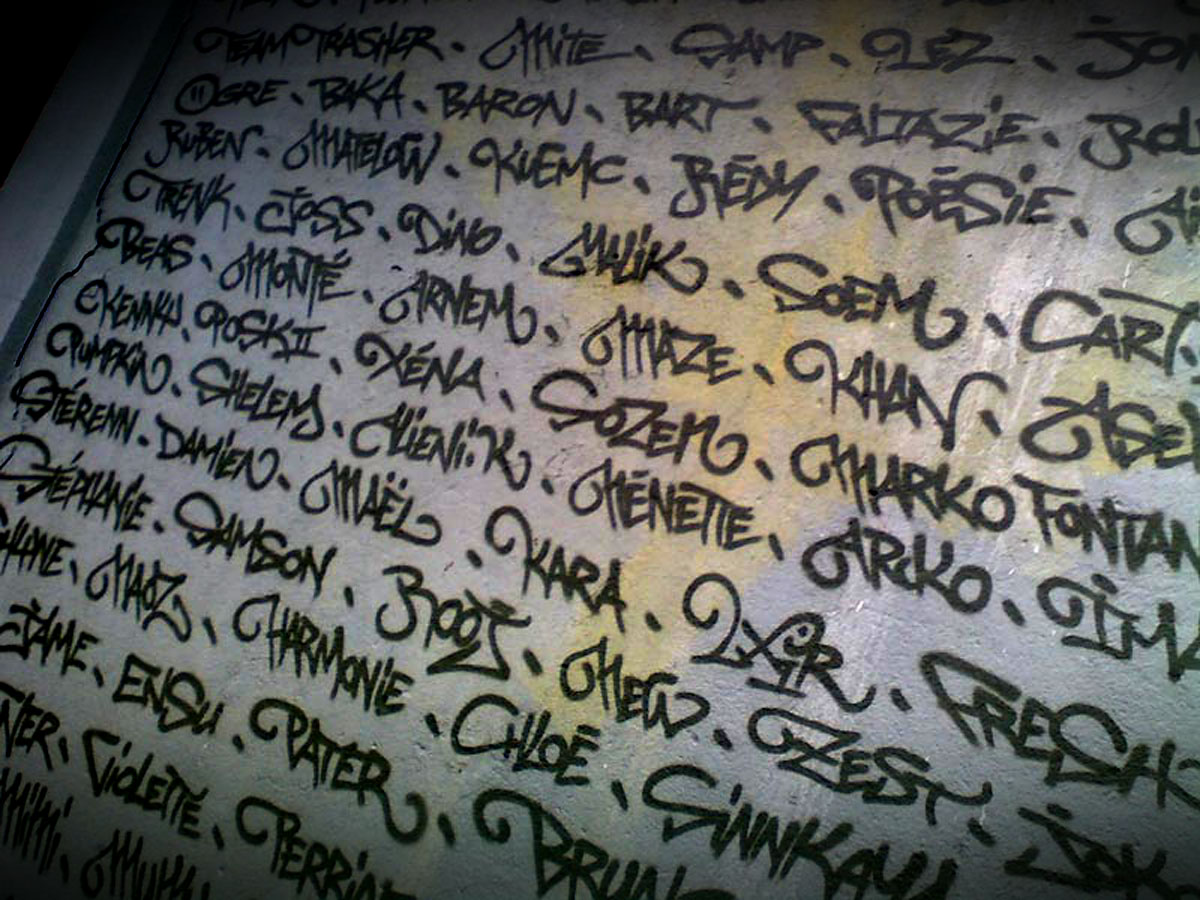 TEAM TRASHER. MITE. SAMP. LEZ. JON
OGRE. BAKA. BARON. BART. FALTAZiE. ROL
RUBEN. MATELOW. KUEMC. RÉDY. POËSiE.
TRENK. JOSS. DiNO. MALiK. SOEM. CART.
BEAS. MONTÉ. ARNEM. MAZE. KHAN. ASE
KENNKU. POSKII. XÉNA. SOZEM. MARKO FONTAN
PUMPKiN. SHELEM. ALiENii.K. MÉNETTE. ARKO. iMA
STÉRENN. DAMiEN. MAËL. KARA. LXiR. FRESH
STÉPHANiE. SAMSON. ROOTS. MEW. ZEST. JOK
MAOZ. HARMONiE. CHLOÉ. SiNNKAYU
JAME. ENSU. PATER. BRUN
NER. ViOLETTE. PERRiN
MiMi.